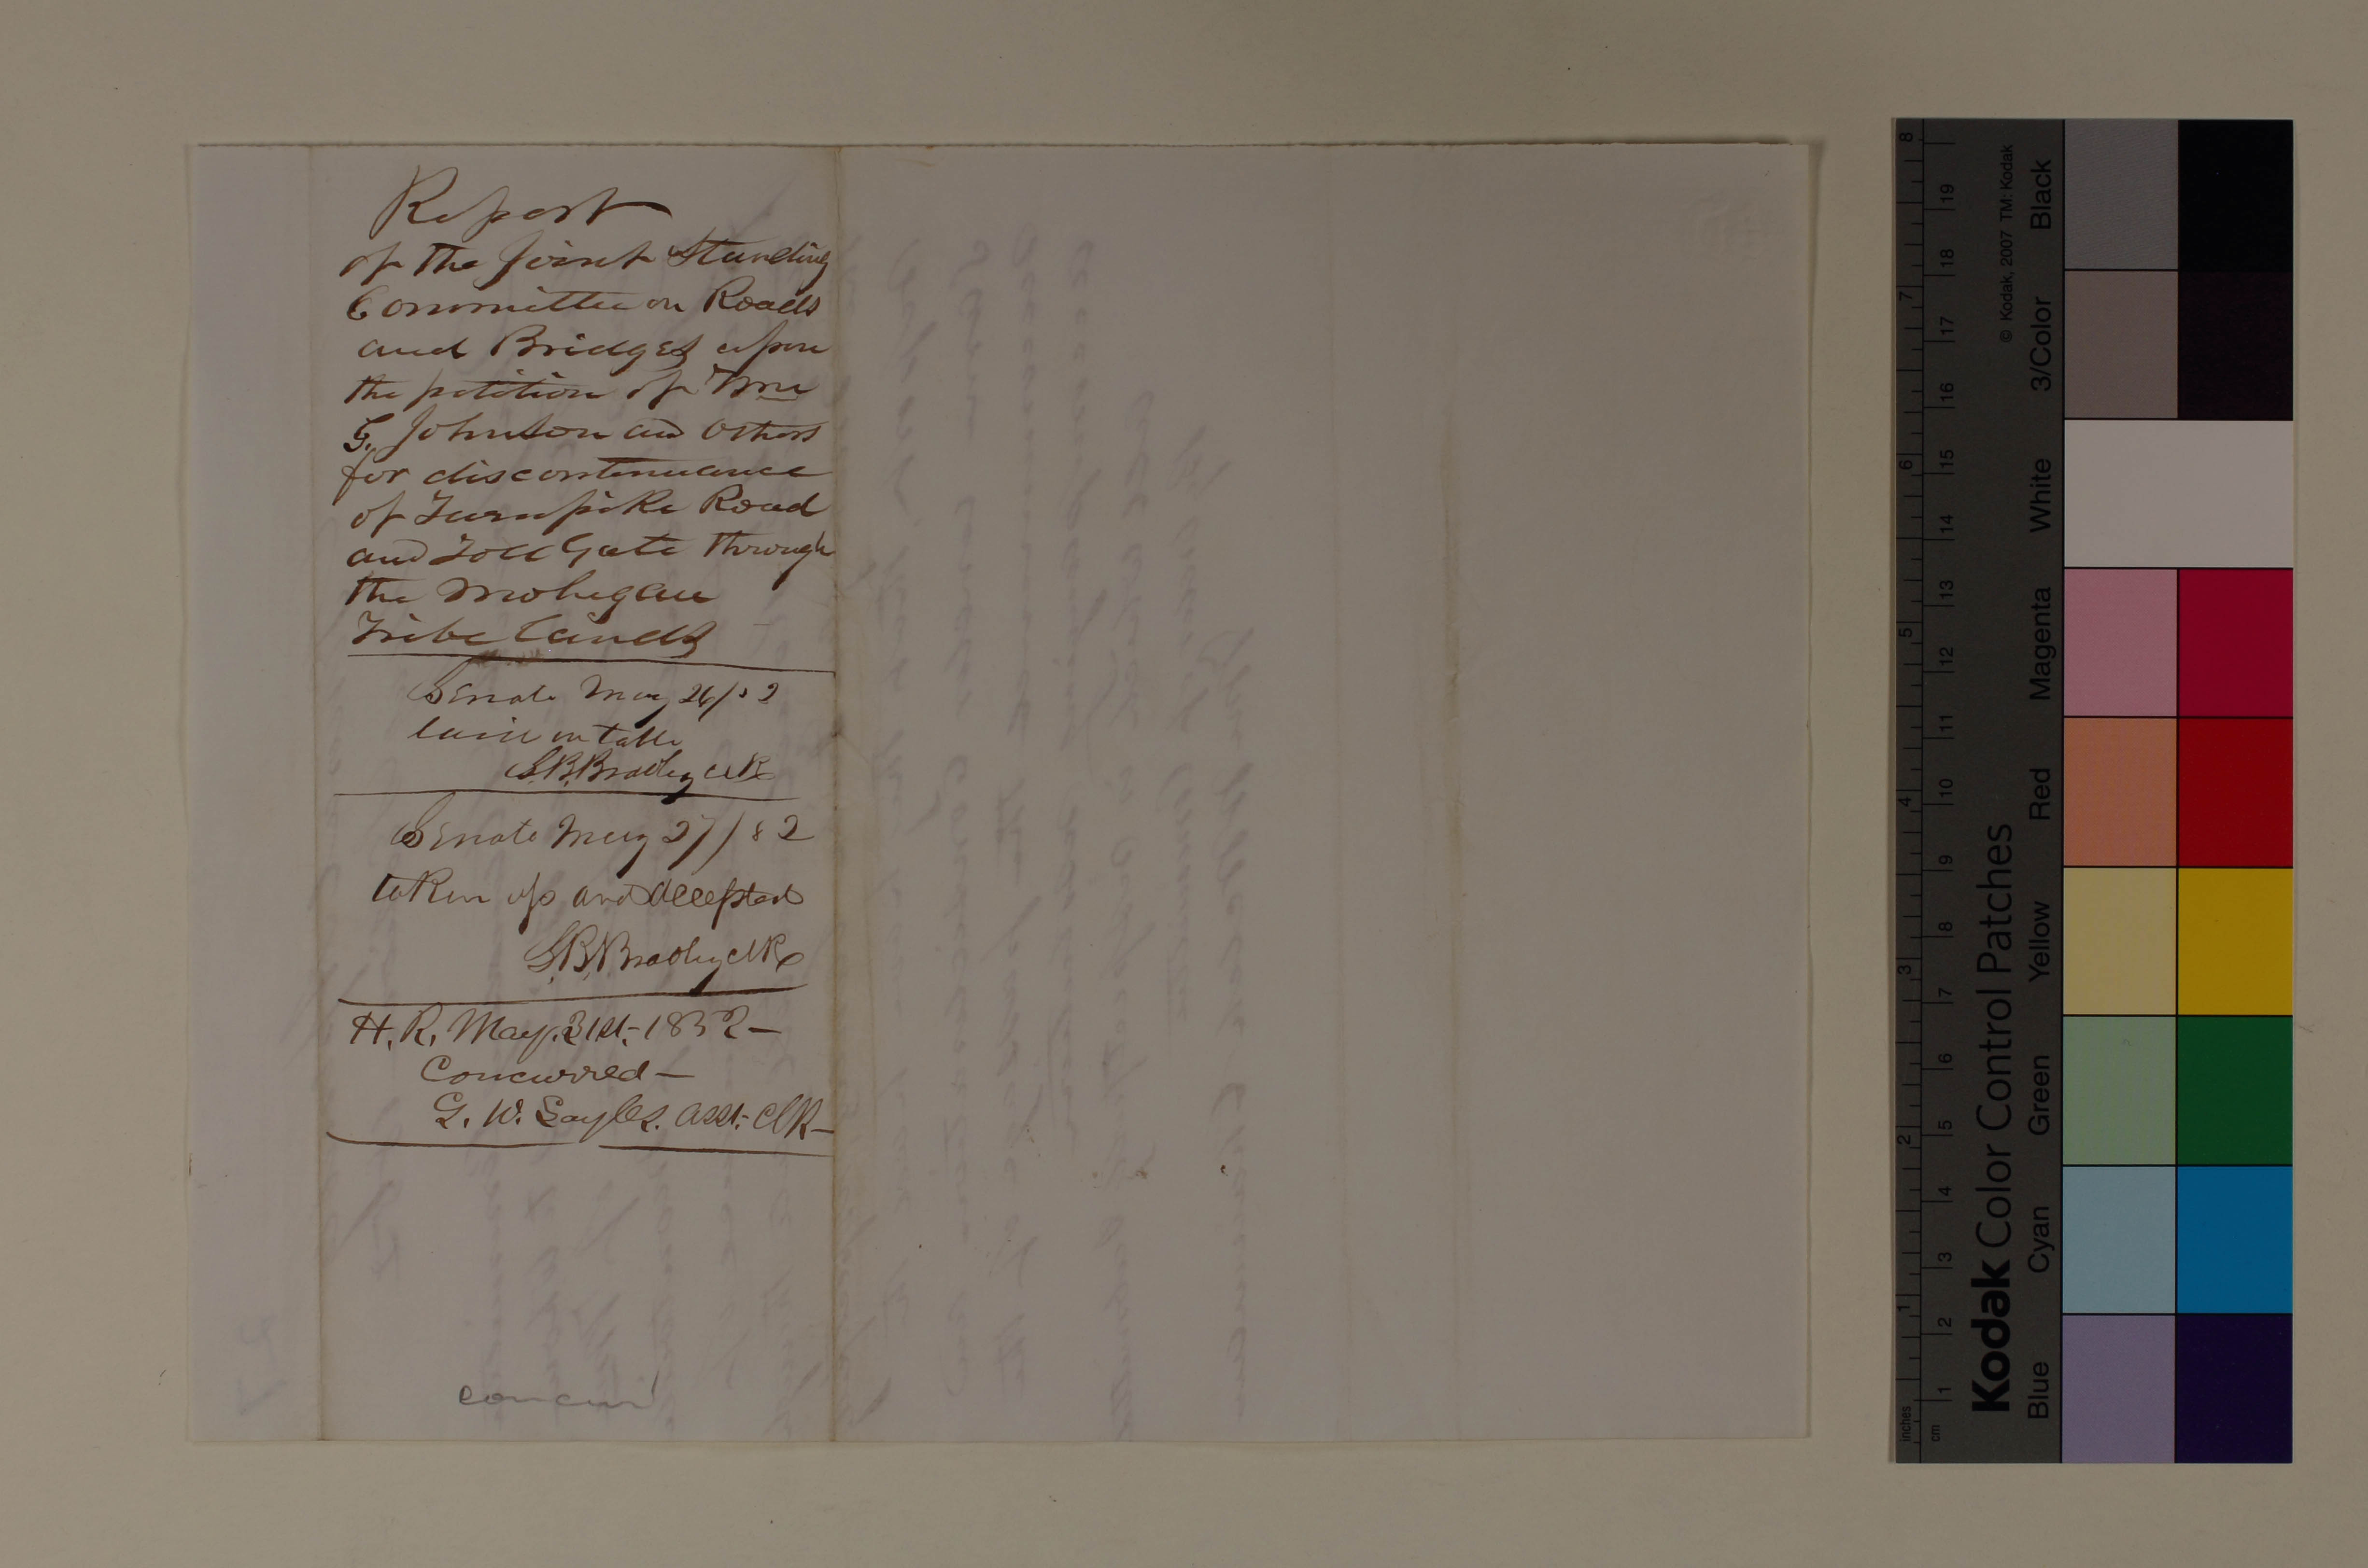 Report
of the Joint Standing
Committee on Roads
and Bridges upon
the petition of Wm
G. Johnson and others
for discontinuance
of Turnpike Road
and Toll Gate through
the Mohegan
Tribe Lands
Senate May 26/52
laid on table
S.B. Bradley clk
Senate May 27/52
taken up and accepted
S.B. Bradley clk
H. R. May. 31st. 1852 —
Concurred —
G. W. Sayles. asst. Clk —
concur
Kodak Color Control Patches
© Kodak, 2007 TM: Kodak
Blue Cyan Green Yellow Red Magenta White 3/Color Black
inches 1 2 3 4 5 6 7 8
cm 1 2 3 4 5 6 7 8 9 10 11 12 13 14 15 16 17 18 19